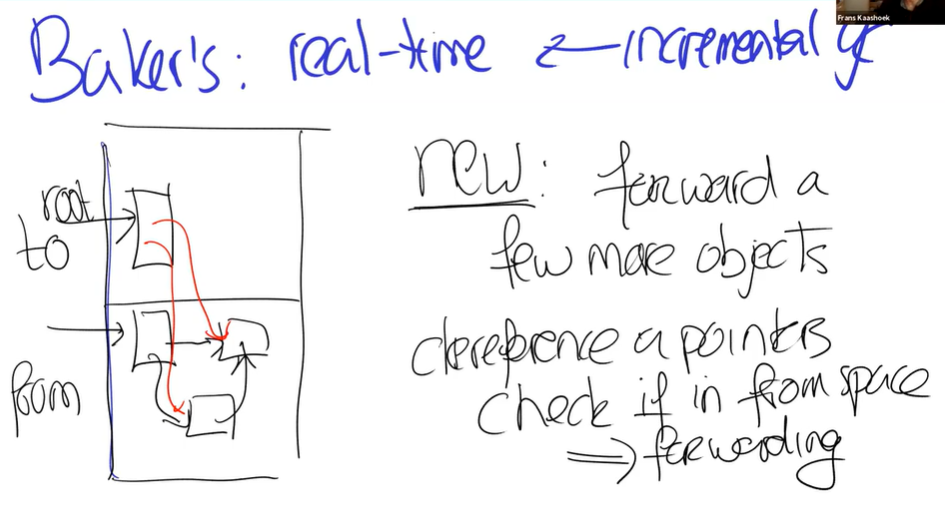 Frans Kaashoek
Baker's: real-time ← incremental gc
new: forward a
few more objects
root
to
from
dereference a pointers
check if in from space
⇒ forwarding